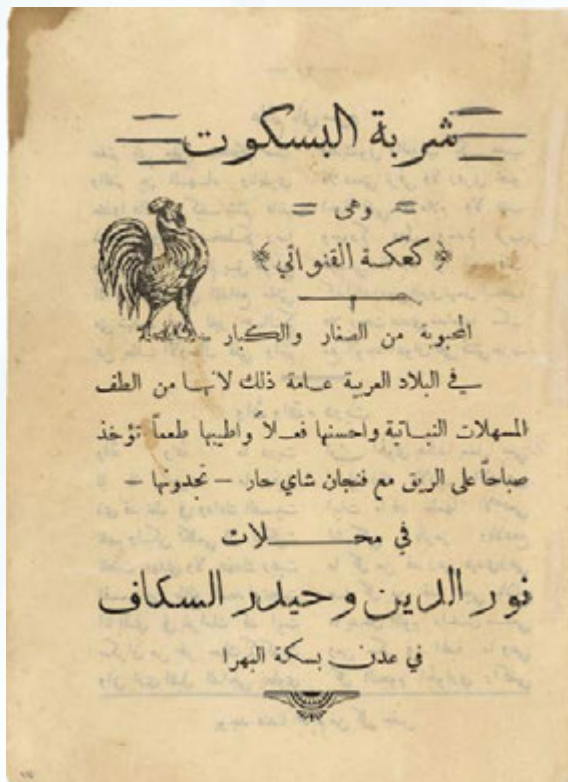 شربة البسكوت
وهى
كعكة القنواتي
المحبوبة من الصغار والكبار
في البلاد العربية عامة ذلك لانها من الطف
المسهلات النباتية واحسنها فعلاً واطيبها طعماً تؤخذ
صباحاً على الريق مع فنجان شاي حار — تجدونها —
في محلات
نور الدين وحيدر السكاف
في عدن بسكة البهرا